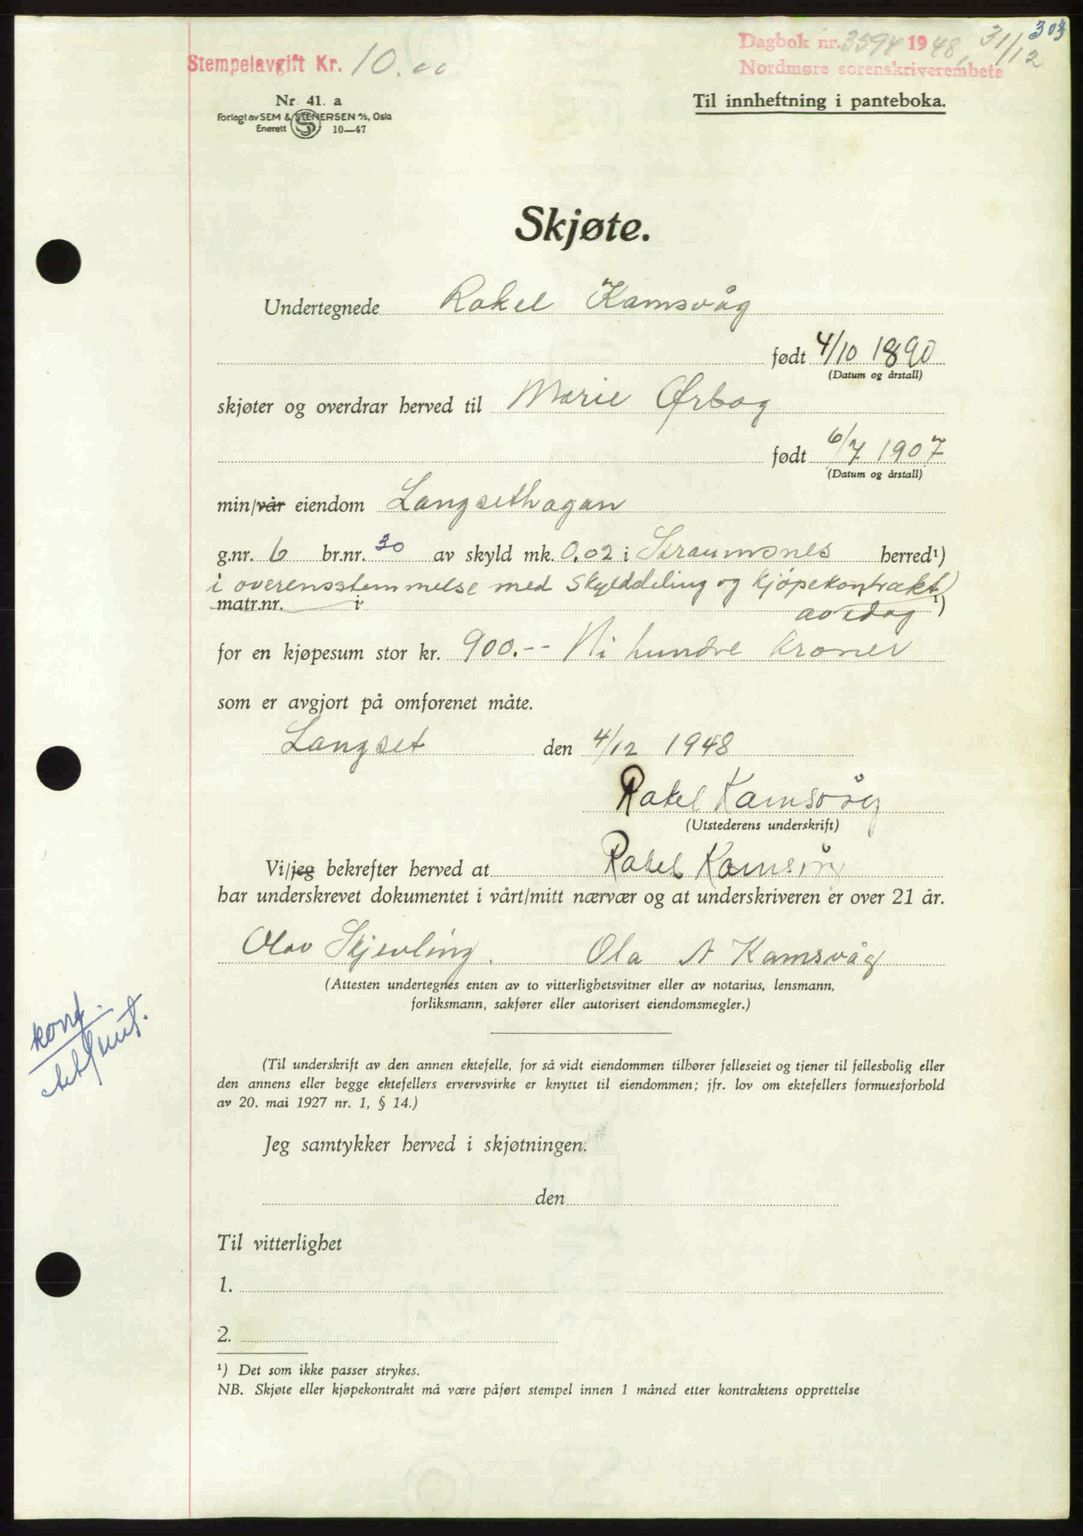 303
Stempelavgift Kr. 10.00
Dagbok nr. 3594 1948, 31/12
Nordmøre sorenskriverembete
Nr. 41. a
Forlagt av SEM & STENERSEN A/S, Oslo
Enerett 10—47
Til innheftning i panteboka.
Skjøte.
Undertegnede Rakel Kamsvåg
født 4/10 1890
(Datum og årstall)
skjøter og overdrar herved til Marie Ørbog
født 6/7 1907
(Datum og årstall)
min/vår eiendom Langsethagan
g.nr. 6 br.nr. 30 av skyld mk. 0.02 i Straumsnes herred¹)
i overensstemmelse med Skylddeling og Kjøpekontrakt
matr.nr. i ¹)
av idag
for en kjøpesum stor kr. 900.-- Ni hundre kroner
som er avgjort på omforenet måte.
Langset den 4/12 1948
Rakel Kamsvåg
(Utstederens underskrift)
Vi/jeg bekrefter herved at Rakel Kamsvåg
har underskrevet dokumentet i vårt/mitt nærvær og at underskriveren er over 21 år.
Olav Skjevling. Ola A Kamsvåg
(Attesten undertegnes enten av to vitterlighetsvitner eller av notarius, lensmann,
forliksmann, sakfører eller autorisert eiendomsmegler.)
konf.
(Til underskrift av den annen ektefelle, for så vidt eiendommen tilhører felleseiet og tjener til fellesbolig eller
den annens eller begge ektefellers ervervsvirke er knyttet til eiendommen; jfr. lov om ektefellers formuesforhold
av 20. mai 1927 nr. 1, § 14.)
Jeg samtykker herved i skjøtningen.
den
Til vitterlighet
1.
2.
¹) Det som ikke passer strykes.
NB. Skjøte eller kjøpekontrakt må være påført stempel innen 1 måned etter kontraktens opprettelse